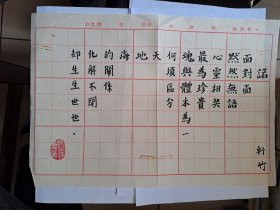 諾
軒竹
面對面
默然無語
心靈相契
最為珍貴
魂與體本為一
何須區分
天
地
海
的關係
化解不開
却生生世世。